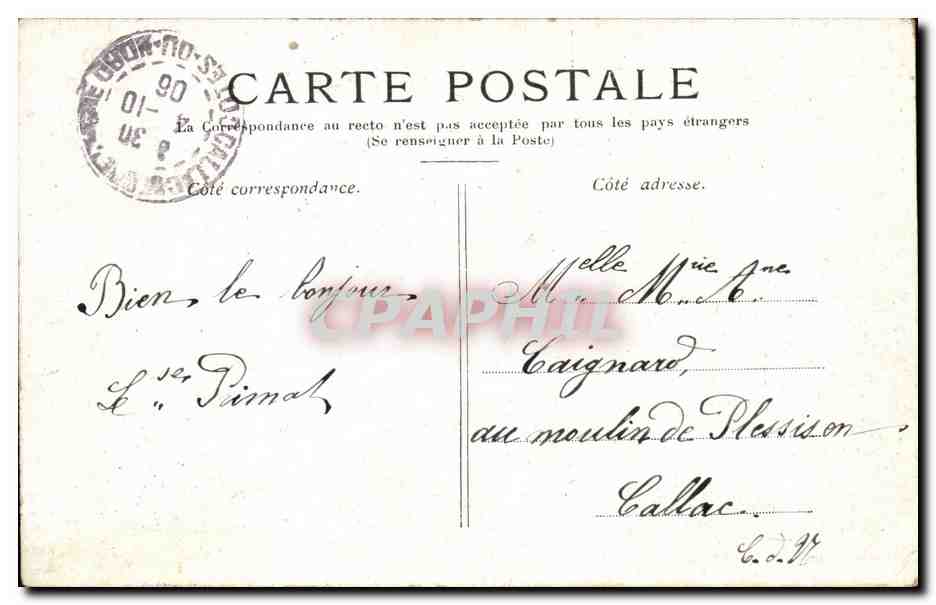 CARTE POSTALE
La Correspondance au recto n'est pas acceptée par tous les pays étrangers
(Se renseigner à la Poste)
Côté correspondance.
Côté adresse.
Bien le bonjour
L. ser Primat
Melle Mrie Ane
Caignard,
au moulin de Plessis en
Callac.
C. d. N
CPAPHIL
CALLAC
COTES-DU-NORD
8 30
4 -10
06